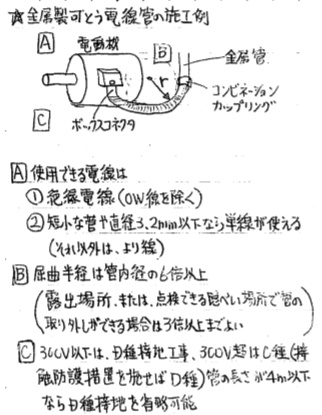 ☆金属製可とう電線管の施工例
A 電動機
B 金属管
r
コンビネーション
カップリング
C ボックスコネクタ
A 使用できる電線は
① 絶縁電線(OW線を除く)
② 短小な管や直径3.2mm以下なら単線が使える
(それ以外は、より線)
B 屈曲半径は管内径の6倍以上
(露出場所、または、点検できる隠ぺい場所で管の
取り外しができる場合は3倍以上までよい)
C 300V以下は、D種接地工事、300V超はC種(接
触防護措置を施せばD種)管の長さが4m以下
ならD種接地を省略可能